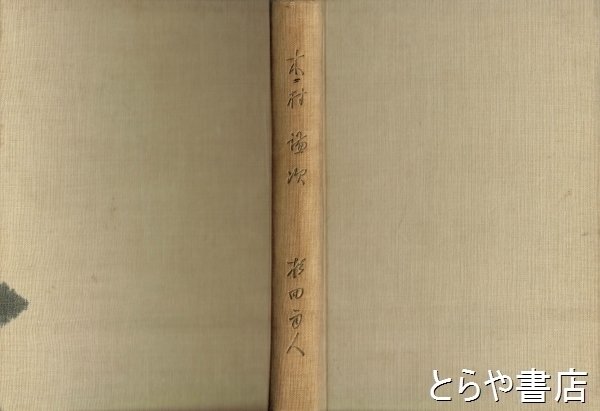 木村謙次
杉田雨人
とらや書店